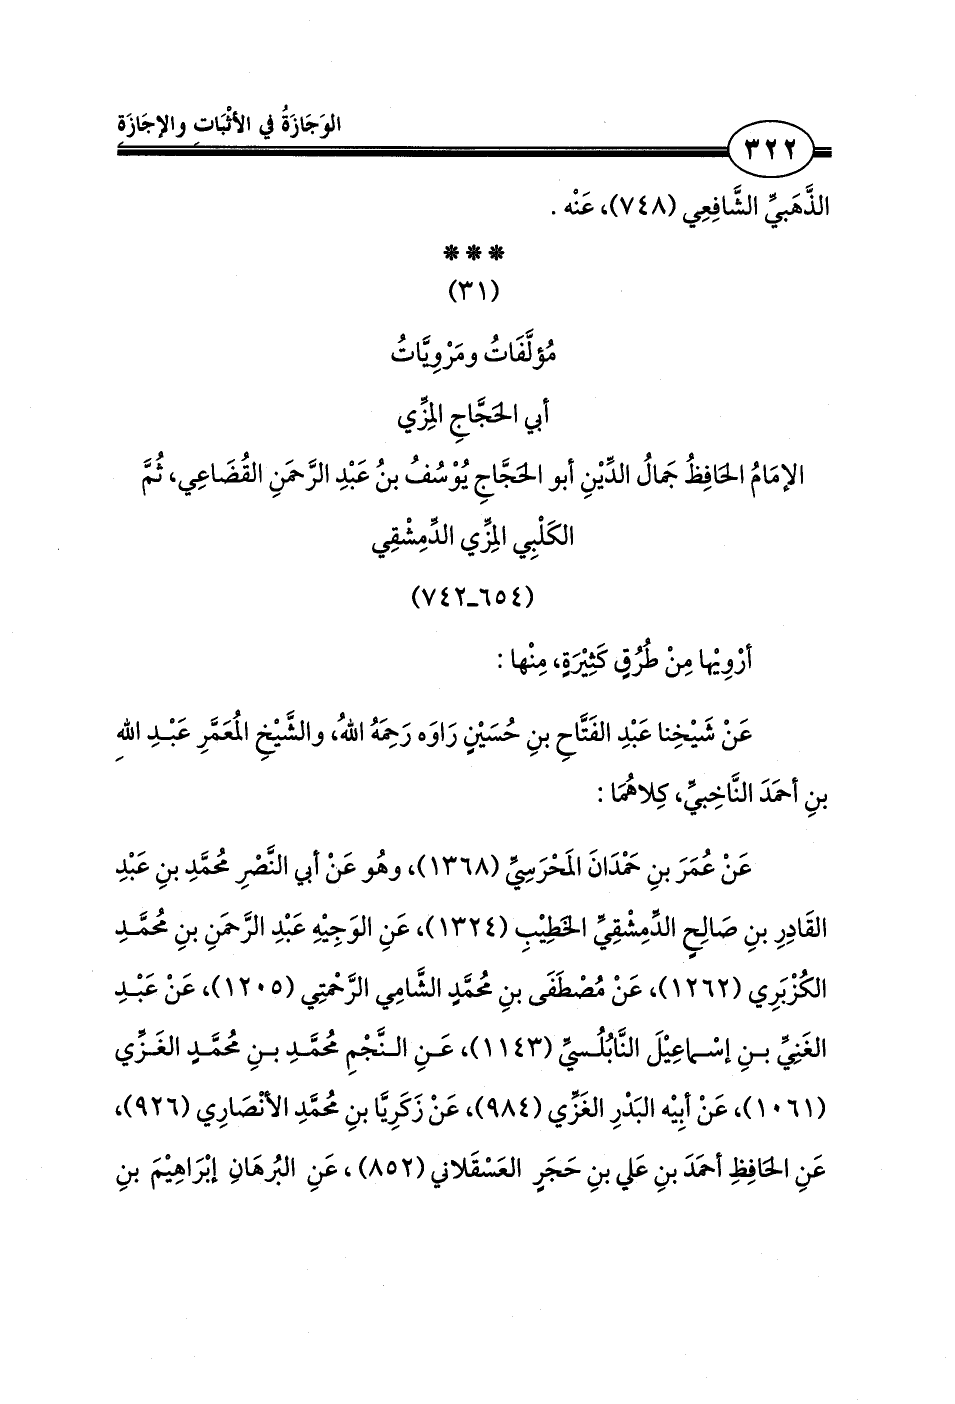 الوَجَازَةُ في الأثْبَاتِ والإجَازَةِ
٣٢٢
الذَّهَبيِّ الشَّافِعِي (٧٤٨)، عَنْه .
***
(٣١)
مُؤلَّفَاتُ ومَرْوِيَّاتُ
أبي الحَجَّاجِ المِزِّي
الإمَامُ الحَافِظُ جَمالُ الدِّيْنِ أبو الحَجَّاجِ يُوْسُفُ بنُ عَبْدِ الرَّحمَنِ القُضَاعِي، ثُمَّ
الكَلْبِي المِزِّي الدِّمِشْقِي
(٦٥٤ـ٧٤٢)
أرْوِيْها مِنْ طُرُقٍ كَثِيْرَةٍ، مِنْها :
عَنْ شَيْخِنا عَبْدِ الفَتَّاحِ بنِ حُسَيْنٍ رَاوَه رَحِمَهُ اللهُ، والشَّيْخِ المُعَمَّرِ عَبْدِ اللهِ
بنِ أحمَدَ النَّاخِبيِّ، كِلاهُمَا :
عَنْ عُمَرَ بنِ حَمْدَانَ المَحْرَسِيِّ (١٣٦٨)، وهُو عَنْ أبي النَّصْرِ مُحمَّدِ بنِ عَبْدِ
القَادِرِ بنِ صَالِحٍ الدِّمِشْقِيِّ الخَطِيْبِ (١٣٢٤)، عَنِ الوَجِيْهِ عَبْدِ الرَّحمَنِ بنِ مُحمَّدٍ
الكُزْبَرِي (١٢٦٢)، عَنْ مُصْطَفَى بنِ مُحمَّدٍ الشَّامِي الرَّحْمَتِي (١٢٠٥)، عَنْ عَبْدِ
الغَنِيِّ بنِ إسْماعِيْلَ النَّابُلُسيِّ (١١٤٣)، عَنِ النَّجْمِ مُحمَّدِ بنِ مُحمَّدٍ الغَزِّي
(١٠٦١)، عَنْ أبيْه البَدْرِ الغَزِّي (٩٨٤)، عَنْ زَكَرِيَّا بنِ مُحمَّدٍ الأنْصَارِي (٩٢٦)،
عَنِ الحَافِظِ أحمَدَ بنِ عَلي بنِ حَجَرٍ العَسْقَلاني (٨٥٢)، عَنِ البُرهَانِ إبْرَاهِيْمَ بنِ